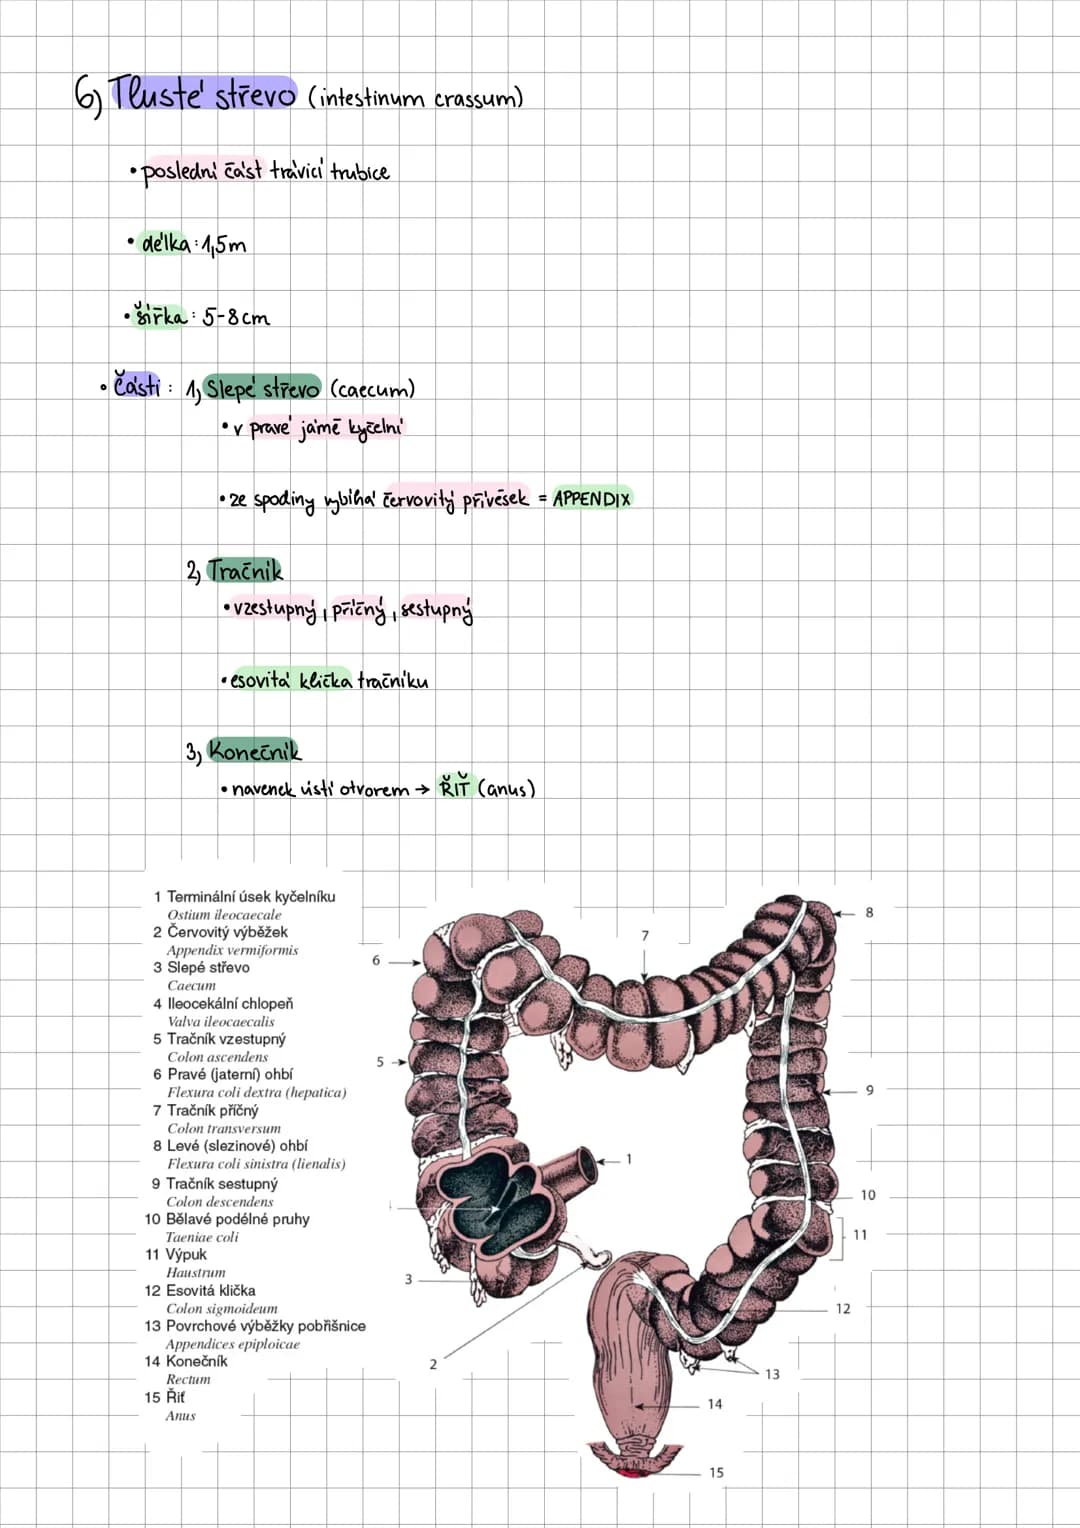 6) Tlusté střevo (intestinum crassum)
• poslední část trávicí trubice
• délka: 1,5m
• šířka: 5-8cm
• Části: 1) Slepé střevo (caecum)
• v pravé jámě kyčelní
• ze spodiny vybíhá červovitý přívěsek = APPENDIX
2) Tračník
• vzestupný, příčný, sestupný
• esovitá klička tračníku
3) Konečník
• navenek ústí otvorem → ŘIŤ (anus)
1 Terminální úsek kyčelníku
Ostium ileocaecale
2 Červovitý výběžek
Appendix vermiformis
3 Slepé střevo
Caecum
4 Ileocekální chlopeň
Valva ileocaecalis
5 Tračník vzestupný
Colon ascendens
6 Pravé (jaterní) ohbí
Flexura coli dextra (hepatica)
7 Tračník příčný
Colon transversum
8 Levé (slezinové) ohbí
Flexura coli sinistra (lienalis)
9 Tračník sestupný
Colon descendens
10 Bělavé podélné pruhy
Taeniae coli
11 Výpuk
Haustrum
12 Esovitá klička
Colon sigmoideum
13 Povrchové výběžky pobřišnice
Appendices epiploicae
14 Konečník
Rectum
15 Řiť
Anus
6
7
8
5
9
1
10
11
3
12
2
13
14
15